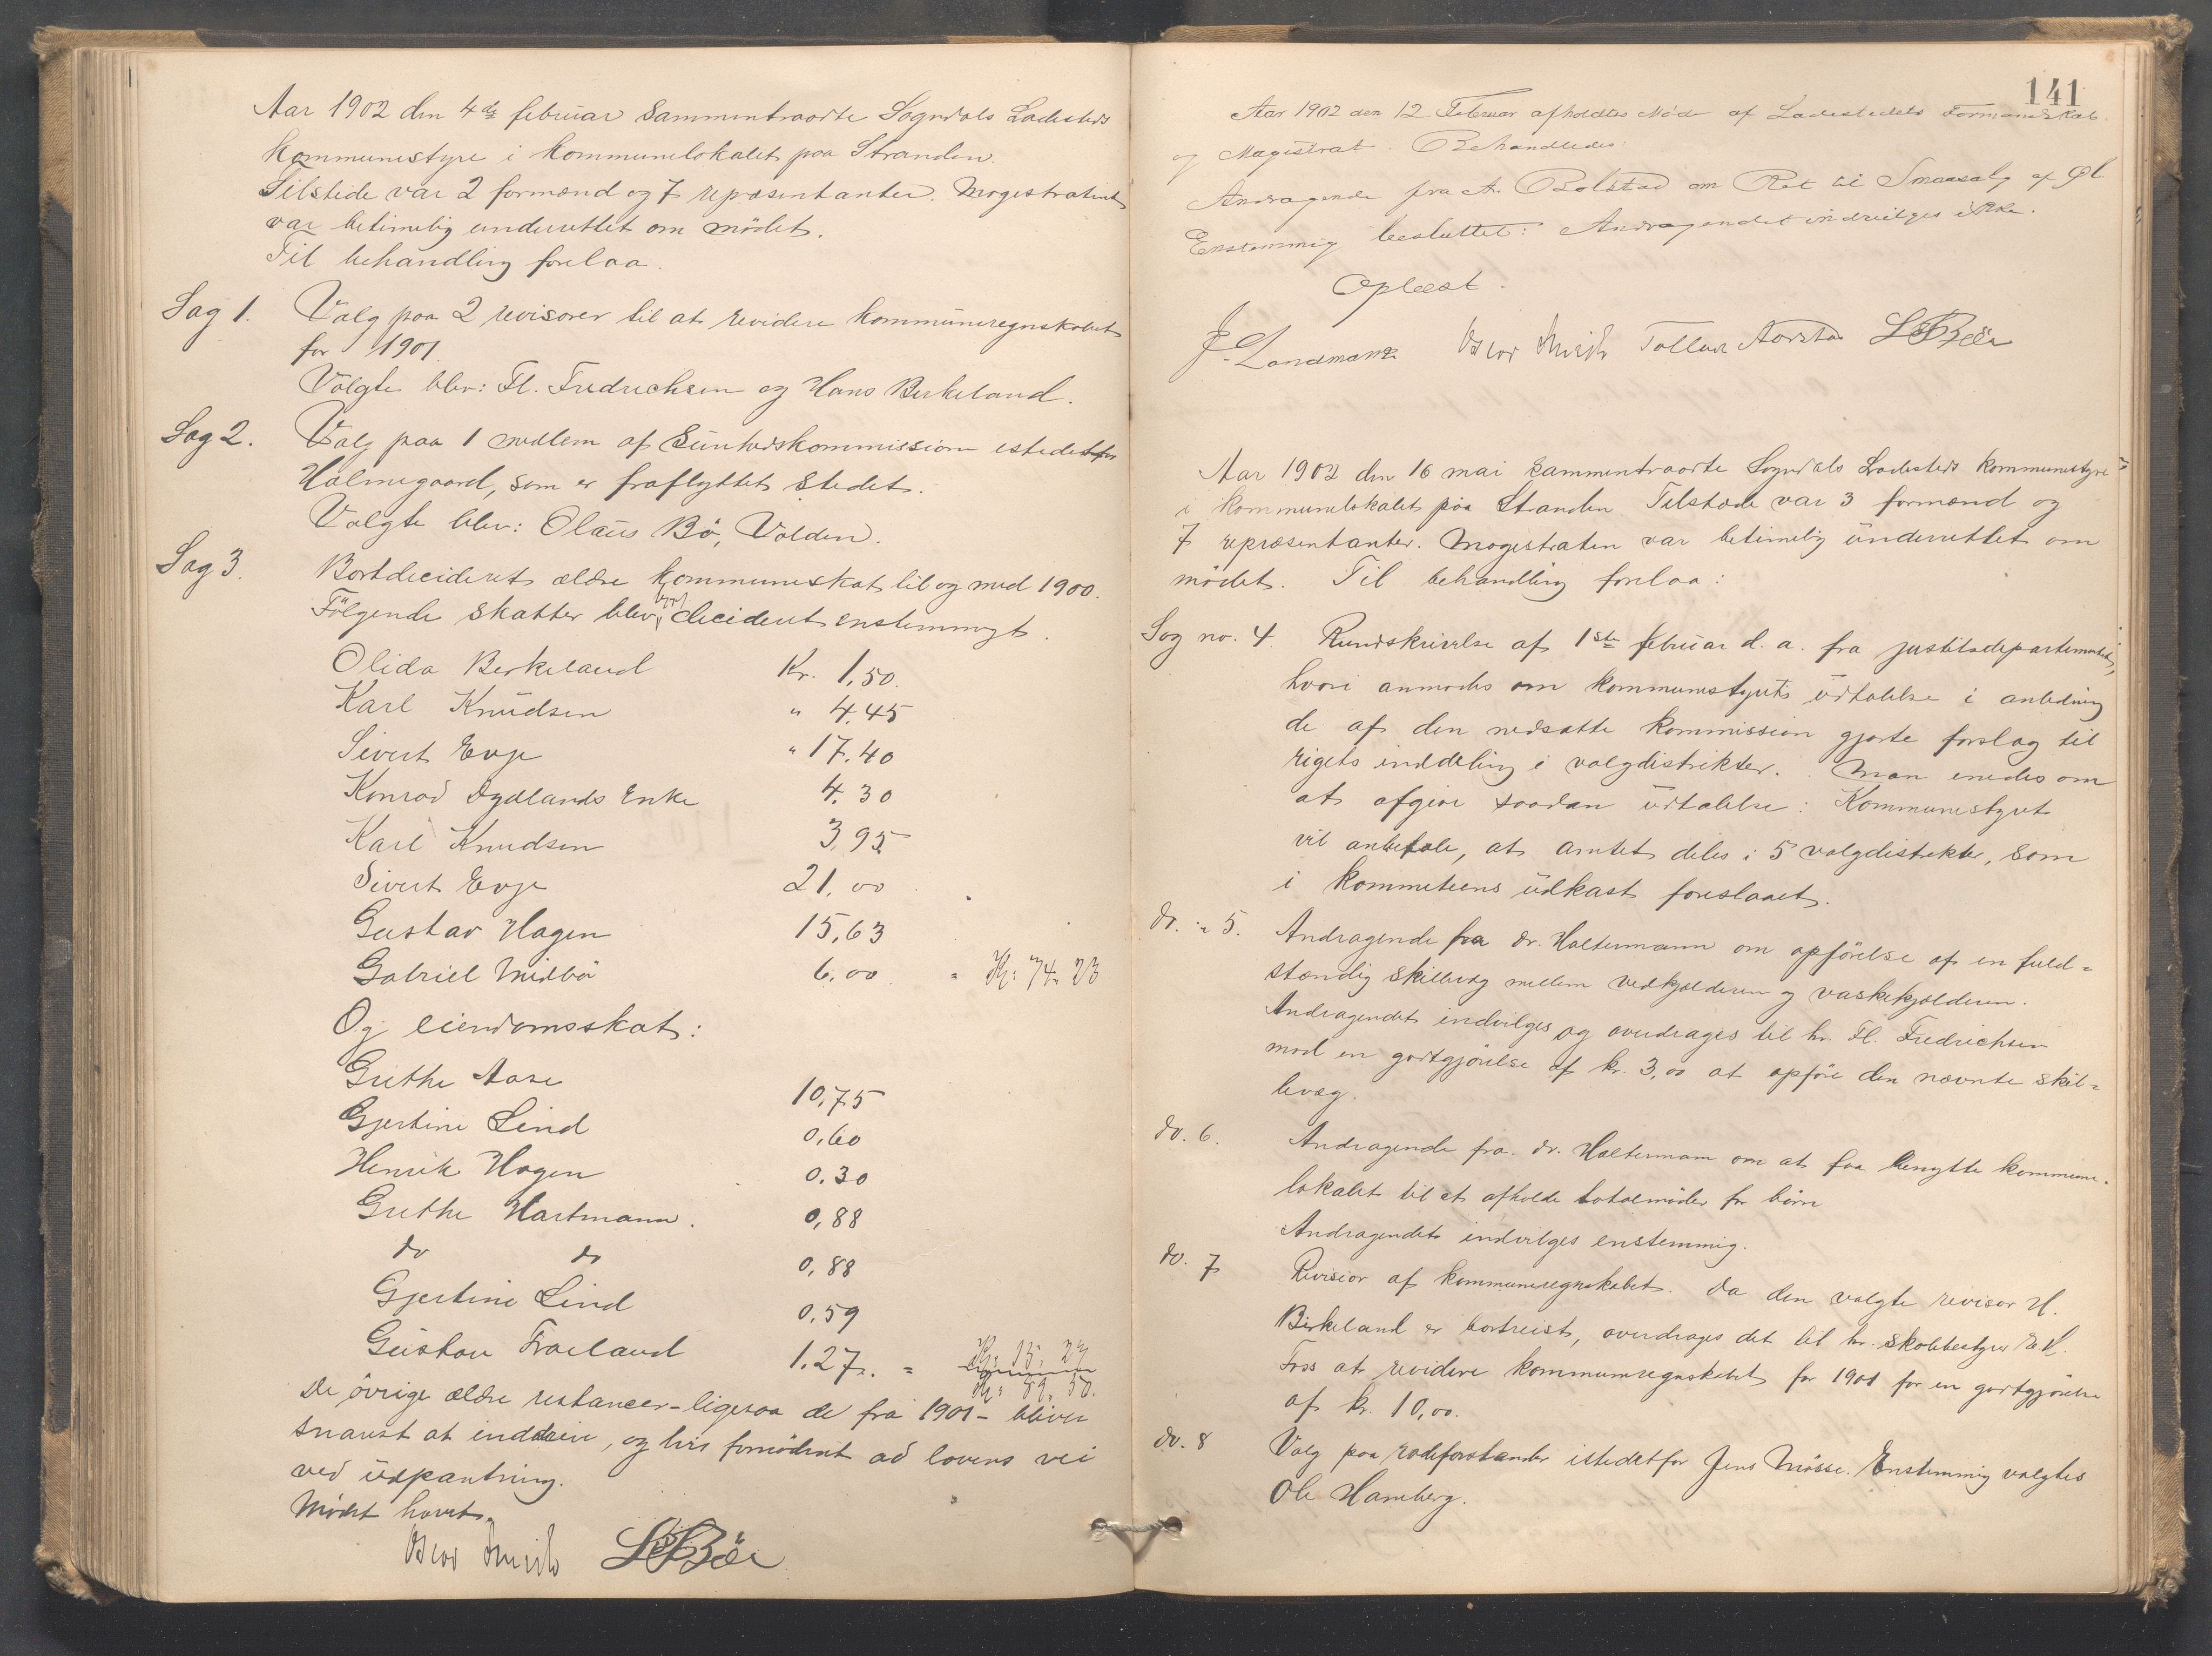 Aar 1902 den 4de februar sammentraadte Sogndals Ladesteds
kommunestyre i kommunelokalet paa Stranden.
Tilstede var 2 formænd og 7 repræsentanter. Magistraten
var betimelig underrettet om mödet.
Til behandling forelaa.
Sag 1. Valg paa 2 revisorer til at revidere kommuneregnskabet
for 1901.
Valgte blev: Fl. Fredrichsen og Hans Birkeland.
Sag 2. Valg paa 1 medlem af Sundhedskommission istedetfor
Holmegaard, som er fraflyttet stedet.
Valgte blev: Olaus Bö, Volden.
Sag 3. Bortdecideret ældre kommuneskat til og med 1900.
Fölgende skatter blev bort decideret enstemmigt.
Olida Berkeland Kr. 1,50.
Karl Knudsen " 4.45
Sivert Evje " 17.40
Konrad Dydlands Enke 4.30
Karl Knudsen 3,95
Sivert Evje 21,00
Gustav Hagen 15,63
Gabriel Midbö 6,00 = Kr. 74.23
Og eiendomsskat:
Grethe Aase 10,75
Gjertine Lind 0,60
Henrik Hagen 0.30
Grethe Hartmann. 0,88
do do 0,88
Gjertine Lind 0,59
Gustav Froeland 1.27. = Kr. 15,27
Kr. 89.50.
De övrige ældre restancer - ligesaa de fra 1901 - bliver
snarest at inddrive, og hvis fornödent ad lovens vei
ved udpantning.
Mödet hævet.
Oscar Smith SBBöe
141
Aar 1902 den 12 Februar afholdtes Möde af Ladestedets Formandskab
og Magistrat. Behandledes:
Andragende fra A. Bolstad om Ret til Smaasalg af Øl.
Enstemmig besluttet: Andragendet indvilges ikke.
Oplæst.
J. Landmark Oscar Smith Tollak Aarstad SBBöe
Aar 1902 den 16 mai sammentraadte Sogndals Ladesteds kommunestyre
i kommunelokalet paa Stranden. Tilstede var 3 formænd og
7 repræsentanter. Magistraten var betimelig underrettet om
mödet. Til behandling forelaa:
Sag no. 4. Rundskrivelse af 1ste februar d. a. fra justitsdepartementet,
hvori anmodes om kommunestyrets udtalelse i anledning
de af den nedsatte kommission gjorte forslag til
rigets inddeling i valgdistrikter. Man enedes om
at afgive saadan udtalelse: Kommunestyret
vil anbefale, at amtet deles i 5 valgdistrikter, som
i kommiteens udkast foreslaaet.
do. " 5. Andragende fra dr. Holtermann om opförelse af en fuld=
stændig skillevæg mellem vedkjælderen og vaskekjælderen.
Andragendet indvilges og overdrages til hr. Fl. Fredrichsen
mod en godtgjörelse af kr. 3,00 at opföre den nævnte skil=
levæg.
do. 6. Andragende fra dr. Holtermann om at faa benytte kommune-
lokalet til at afholde totalmöder for börn
Andragendet indvilges enstemmig.
do. 7 Revision af kommuneregnskabet. Da den valgte revisor H.
Birkeland er bortreist, overdrages det til hr. skolebestyrer E. K.
Foss at revidere kommuneregnskabet for 1901 for en godtgjörelse
af kr. 10,00.
do. 8 Valg paa rodeforstander istedetfor Jens Mösse. Enstemmig valgtes
Ole Hamberg.